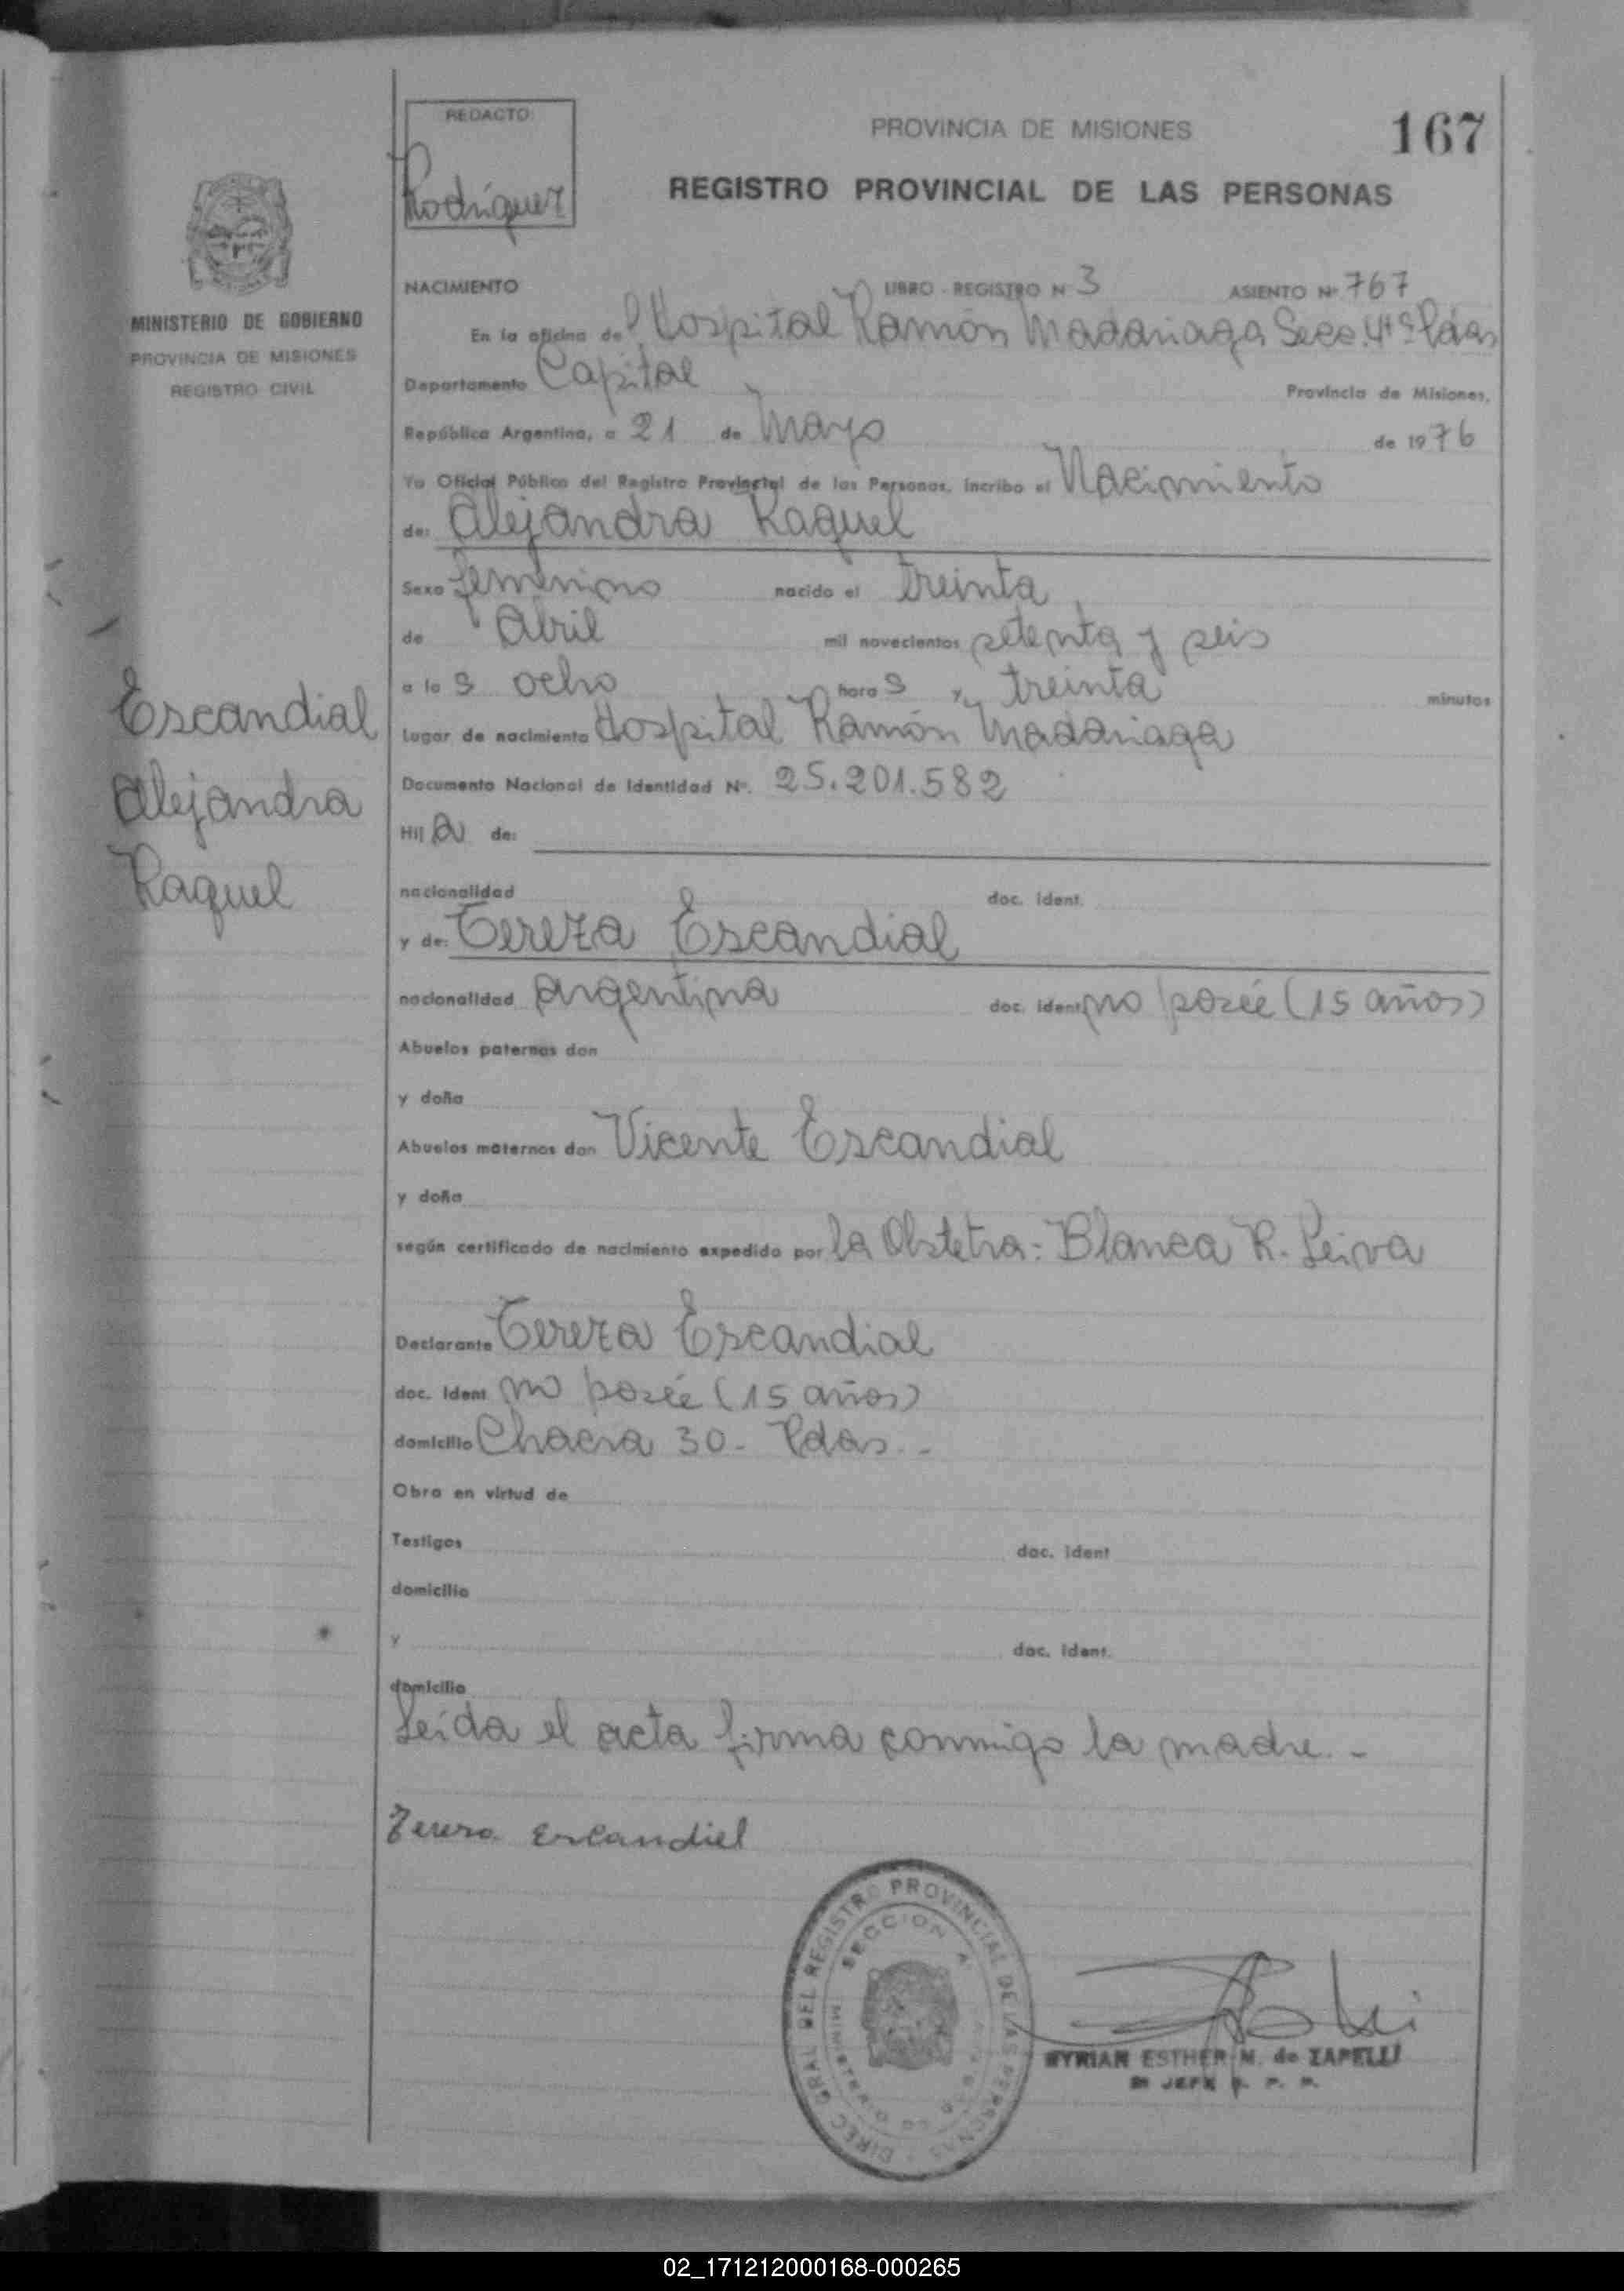 REDACTO
Rodríguez
PROVINCIA DE MISIONES
167
REGISTRO PROVINCIAL DE LAS PERSONAS
MINISTERIO DE GOBIERNO
PROVINCIA DE MISIONES
REGISTRO CIVIL
NACIMIENTO LIBRO - REGISTRO N 3 ASIENTO Nº 767
En la oficina del Hospital Ramón Madariaga Secc. 4ta Pdas
Departamento Capital Provincia de Misiones,
República Argentina, a 21 de Mayo de 1976
Yo Oficial Público del Registro Provincial de las Personas, incribo el Nacimiento
de: Alejandra Raquel
Sexo femenino nacido el treinta
de Abril mil novecientos setenta y seis
a las ocho horas y treinta minutos
Lugar de nacimiento Hospital Ramón Madariaga
Documento Nacional de Identidad Nº. 25.201.582
Hija de:
nacionalidad doc. ident.
y de: Tereza Escandial
nacionalidad argentina doc. ident. no posée (15 años)
Abuelos paternos don
y doña
Abuelos maternos don Vicente Escandial
y doña
según certificado de nacimiento expedido por la Obstetra: Blanca R. Leiva
Declarante Tereza Escandial
doc. ident no posée (15 años)
domicilio Chacra 30 - Pdas. -
Obra en virtud de
Testigos doc. ident
domicilio
y doc. ident.
domicilio
Leída el acta firma conmigo la madre. -
Escandial
Alejandra
Raquel
Tereza Escandiel
DIREC. GRAL. DEL REGISTRO PROVINCIAL DE LAS PERSONAS
SECCION
MYRIAN ESTHER N. de ZAPELLI
JEFE R. P. P.
02_171212000168-000265